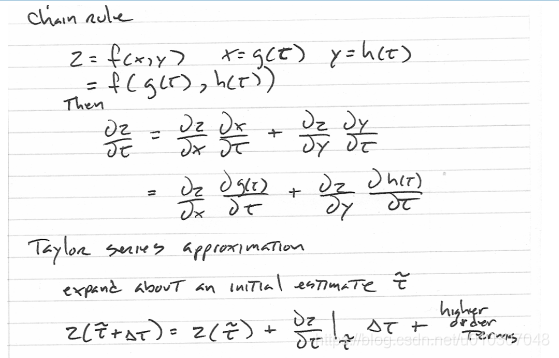 Chain rule
z = f(x,y) x = g(τ) y = h(τ)
= f(g(τ), h(τ))
Then
∂z/∂τ = ∂z/∂x ∂x/∂τ + ∂z/∂y ∂y/∂τ
= ∂z/∂x ∂g(τ)/∂τ + ∂z/∂y ∂h(τ)/∂τ
Taylor series approximation
expand about an initial estimate τ̃
z(τ̃+Δτ) = z(τ̃) + ∂z/∂τ|τ̃ Δτ + higher order terms